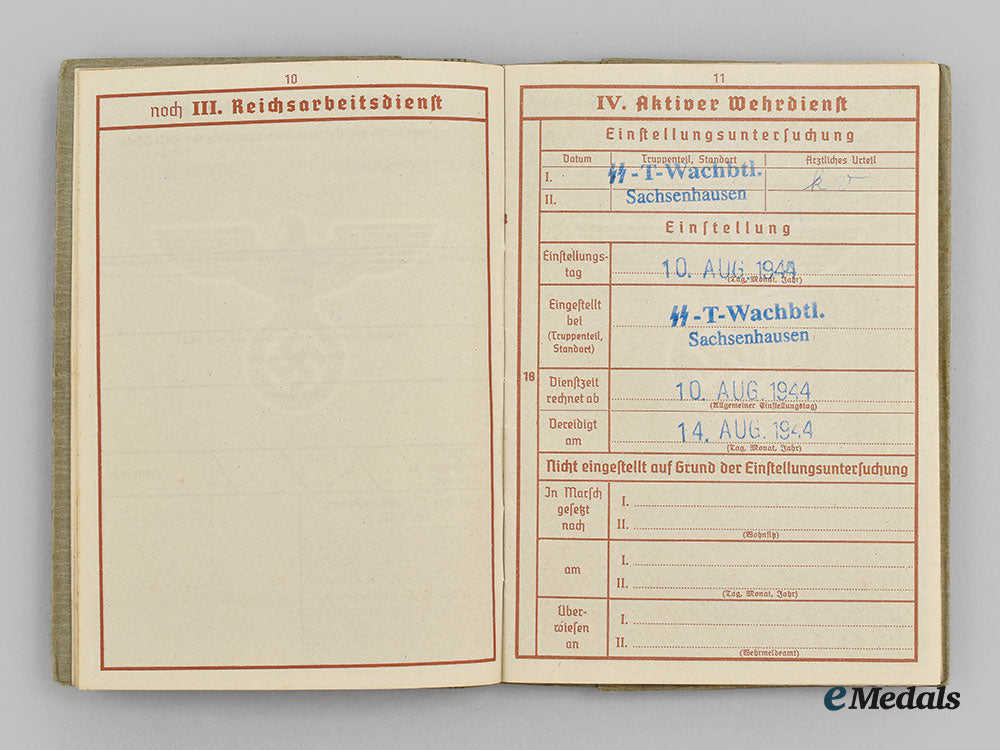 10
noch III. Reichsarbeitsdienst
11
IV. Aktiver Wehrdienst
Einstellungsuntersuchung
Datum
Truppenteil, Standort
Ärztliches Urteil
I.
II.
ᛋᛋ-T-Wachbtl.
Sachsenhausen
kv
Einstellung
Einstellungs-
tag
10. AUG. 1944
(Tag, Monat, Jahr)
Eingestellt
bei
(Truppenteil,
Standort)
ᛋᛋ-T-Wachbtl.
Sachsenhausen
18
Dienstzeit
rechnet ab
10. AUG. 1944
(Allgemeiner Einstellungstag)
Vereidigt
am
14. AUG. 1944
(Tag, Monat, Jahr)
Nicht eingestellt auf Grund der Einstellungsuntersuchung
In Marsch
gesetzt
nach
I.
II.
(Wohnsitz)
am
I.
II.
(Tag, Monat, Jahr)
Über-
wiesen
an
I.
II.
(Wehrmeldeamt)
eMedals